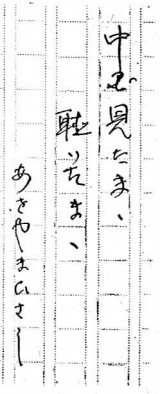 中で見たまゝ
聴いたまゝ
あきやまひさし